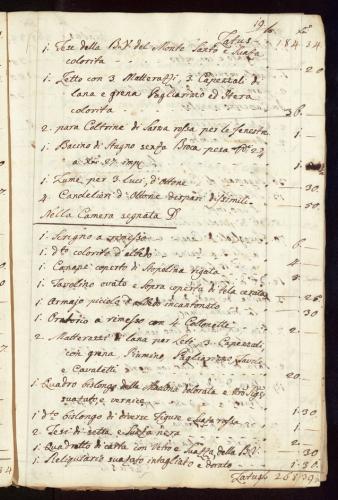 19.
Latus — 184 34
1. Tese della B.V. del Monte Santo e
colorita — 20
1. Letto con 3 Matterazzi, 3 Capezzali di
lana e grena Pagliarizo ed
colorita — 36.
2. para Coltrine di Sarza rossa per le fenestre 1. —
1. Bacino di Stagno senza Broca pesa 24
a
1. Lume per 3. luci, d'Ottone — 30.
4. Candelieri d'Ottone dispari dissimili — 50.
Nella Camera segnata D.
1. Scrigno a remesso — 6 —
1. dto colorito d'albeo — 4
1. Canape coperto di Stopolina rigata
1. Tavolino ovato e Sopra coperta di Tela cerata
1. Armajo piccolo d'albeo incantonato
1. Oratorio a remesso con 4 Collonelle — 2. —
2. Matterazzi di lana per Leti, 3 Capezzali
con grena Piumino Pagliarizzo Tavole
e Cavaletti — 20 —
1. Quadro bislongo della
e vernice — 1. 30
1. dto bislongo di diverse Figure e Suasa rossa — 1. —
2. Tese di setta e Suasa nera — 2. —
1. Quadretto di carta con Vetro e Suasa della B.V. — 30.
1. Reliquiario suasato intagliato e dorato — 1. 30.
Latus